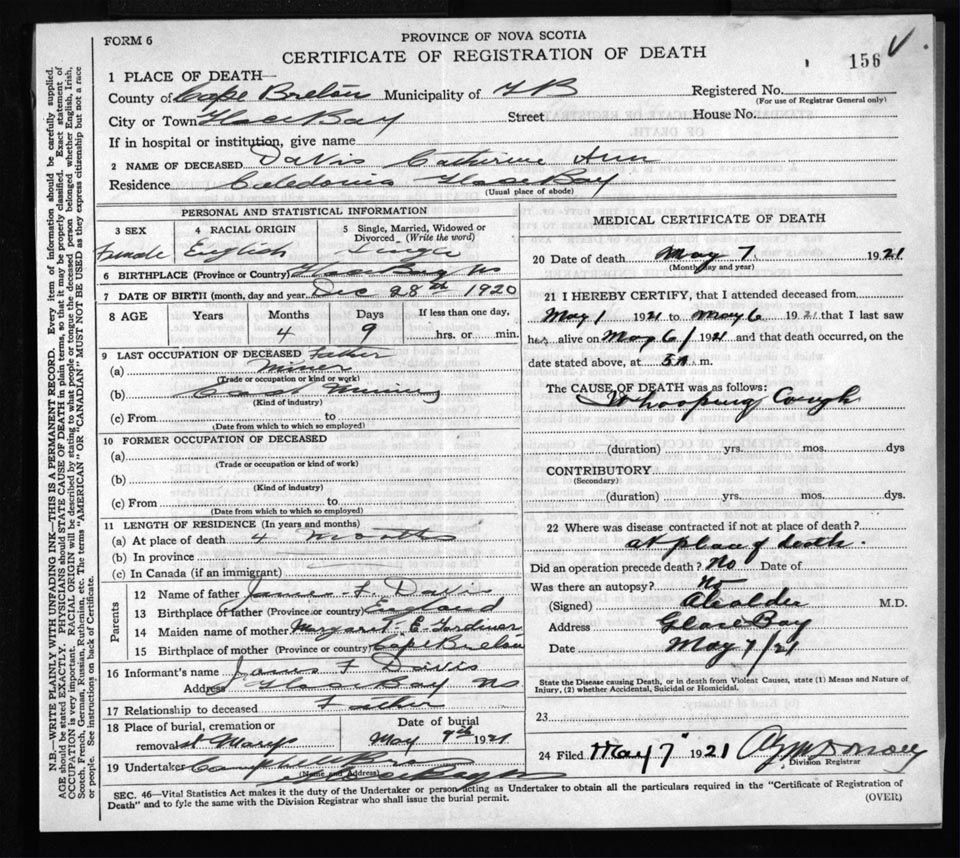 FORM 6
PROVINCE OF NOVA SCOTIA
CERTIFICATE OF REGISTRATION OF DEATH
156
1 PLACE OF DEATH—
County of Cape Breton Municipality of Registered No.
(For use of Registrar General only)
City or Town Glace Bay Street House No.
If in hospital or institution, give name
2 NAME OF DECEASED Davis Catherine Ann
Residence Caledonia Glace Bay
(Usual place of abode)
PERSONAL AND STATISTICAL INFORMATION
3 SEX 4 RACIAL ORIGIN 5 Single, Married, Widowed or Divorced (Write the word)
Female English Single
6 BIRTHPLACE (Province or Country) Glace Bay NS
7 DATE OF BIRTH (month, day and year) Dec 28th 1920
8 AGE Years Months Days If less than one day,
4 9 hrs. or min.
9 LAST OCCUPATION OF DECEASED Father
(a) Miner
(Trade or occupation or kind or work)
(b) Coal Mining
(Kind of industry)
(c) From to
(Date from which to which so employed)
10 FORMER OCCUPATION OF DECEASED
(a)
(Trade or occupation or kind of work)
(b)
(Kind of industry)
(c) From to
(Date from which to which so employed)
11 LENGTH OF RESIDENCE (In years and months)
(a) At place of death 4 months
(b) In province
(c) In Canada (if an immigrant)
Parents
12 Name of father James F. Davis
13 Birthplace of father (Province or country) England
14 Maiden name of mother Margaret E. Gardiner
15 Birthplace of mother (Province or country) Cape Breton
16 Informant's name James F Davis
Address Glace Bay NS
17 Relationship to deceased Father
18 Place of burial, cremation or Date of burial
removal St Marys May 9th 1921
19 Undertaker Campbell Bros
(Name and Address) Glace Bay NS
MEDICAL CERTIFICATE OF DEATH
20 Date of death May 7 1921
(Month, day and year)
21 I HEREBY CERTIFY, that I attended deceased from
May 1 1921 to May 6 1921 that I last saw
her alive on May 6/ 1921 and that death occurred, on the
date stated above, at m.
The CAUSE OF DEATH was as follows:
Whooping Cough
(duration) yrs. mos. dys
CONTRIBUTORY
(Secondary)
(duration) yrs. mos. dys.
22 Where was disease contracted if not at place of death?
at place of death.
Did an operation precede death? No Date of
Was there an autopsy? No
(Signed) M.D.
Address Glace Bay
Date May 7/21
State the Disease causing Death, or in death from Violent Causes, state (1) Means and Nature of
Injury, (2) whether Accidental, Suicidal or Homicidal.
23
24 Filed May 7 1921
Division Registrar
SEC. 46—Vital Statistics Act makes it the duty of the Undertaker or person acting as Undertaker to obtain all the particulars required in the "Certificate of Registration of
Death" and to fyle the same with the Division Registrar who shall issue the burial permit.
(OVER)
N.B.—WRITE PLAINLY WITH UNFADING INK—THIS IS A PERMANENT RECORD. Every item of information should be carefully supplied.
AGE should be stated EXACTLY. PHYSICIANS should STATE CAUSE OF DEATH in plain terms, so that it may be properly classified. Exact statement of
OCCUPATION is very important. RACIAL ORIGIN will be described by stating to what people or tongue the deceased person belonged whether English, Irish,
Scotch, French, German, Russian, Ruthenian, etc. The terms "AMERICAN" OR "CANADIAN" MUST NOT BE USED as they express citizenship but not a race
or people. See instructions on back of Certificate.